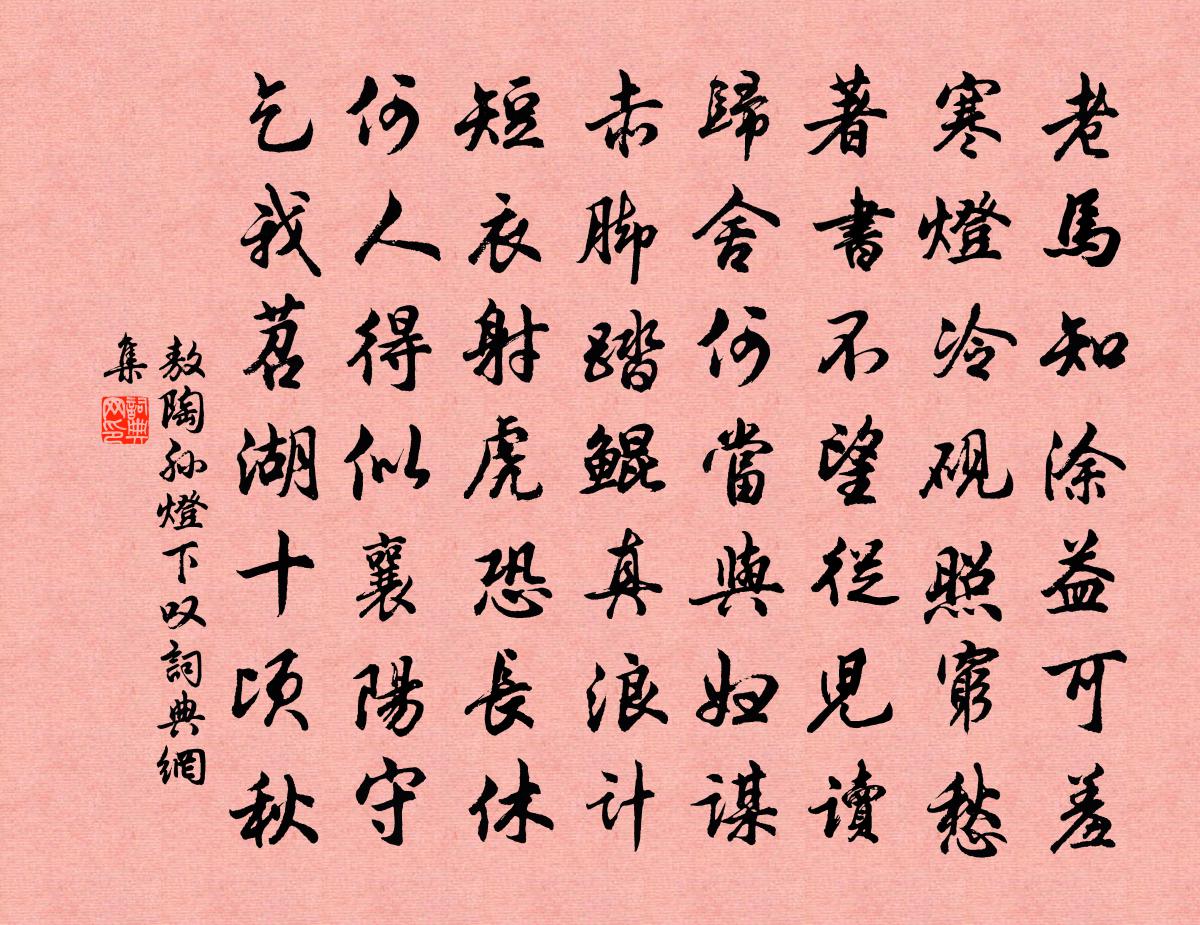 老馬知涂益可羞
寒燈冷硯照窮愁
著書不望從兒讀
歸舍何當與婦謀
赤脚踏鯤真浪计
短衣射虎恐長休
何人得似襄陽守
乞我苕湖十顷秋
敖陶孙燈下叹詞典網
集
詞典网印